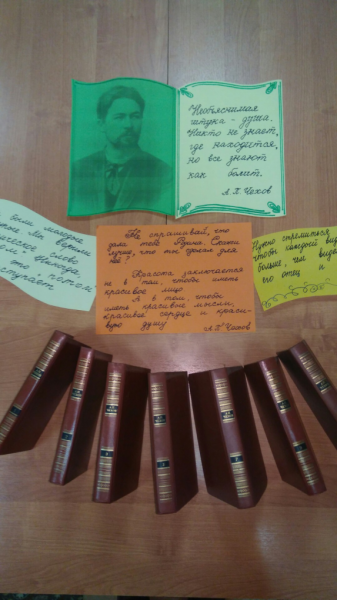 Необъяснимая
штука - душа.
Никто не знает,
где находится,
но все знают
как болит.
А.П. Чехов
Не спрашивай, что
дала тебе Родина. Скажи
лучше, что ты сделал для
неё?
Красота заключается
не в том, чтобы иметь
красивое лицо.
А в том, чтобы
иметь красивые мысли,
красивое сердце и краси-
вую душу
А.П. Чехов
слово
никогда,
потом
Нужно стремиться
чтобы каждый
больше, чем
его отец и